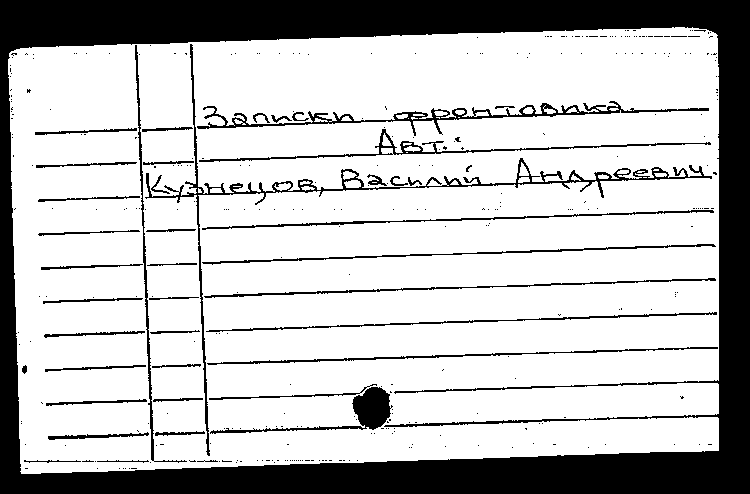 Записки фронтовика.
Авт.:
Кузнецов, Василий Андреевич.